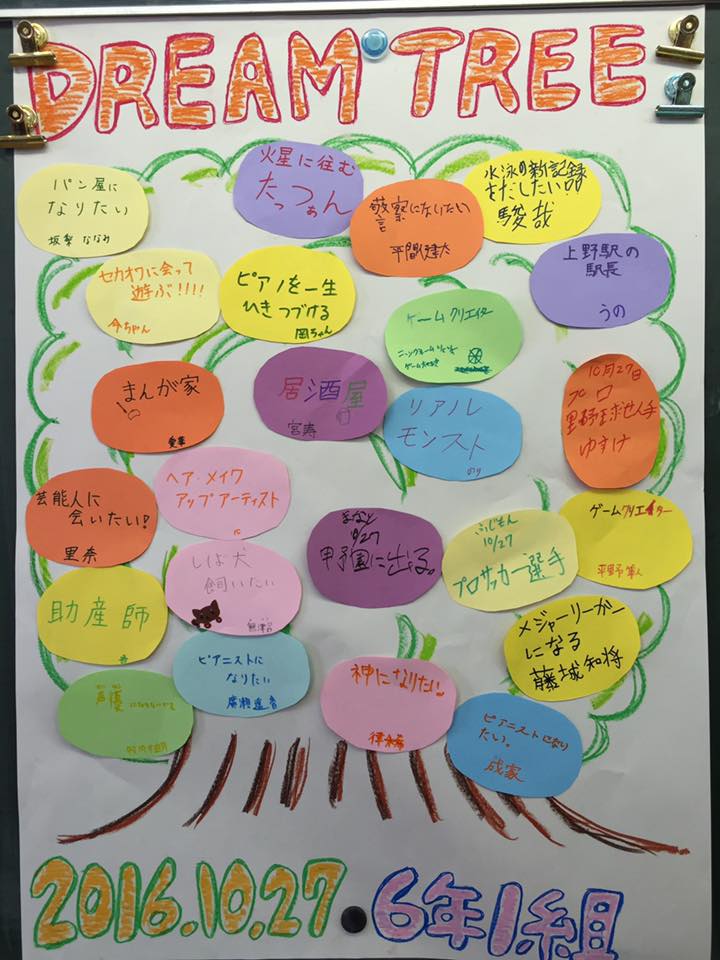 DREAM TREE
パン屋に
なりたい
ななみ
火星に住む
たっつぁん
警察になりたい
平間建太
水泳の新記録
をだしたい!!
駿哉
セカオワに会って
遊ぶ!!!!
今ちゃん
ピアノを一生
ひきつづける
岡ちゃん
上野駅の
駅長
うの
ゲームクリエイター
まんが家
愛華
居酒屋
宮寿
リアル
モンスト
のり
10月27日
プロ
野球せん手
ゆすけ
芸能人に
会いたい!
里奈
ヘア・メイク
アップアーティスト
まなと
10/27
甲子園に出る。
ふじもん
10/27
プロサッカー選手
ゲームクリエイター
平野隼人
助産師
しば犬
飼いたい
メジャーリーガー
になる
藤城知将
声優
ピアニストに
なりたい
廣瀬遥音
神になりたい
ピアニストになり
たい。
成家
2016.10.27
6年1組